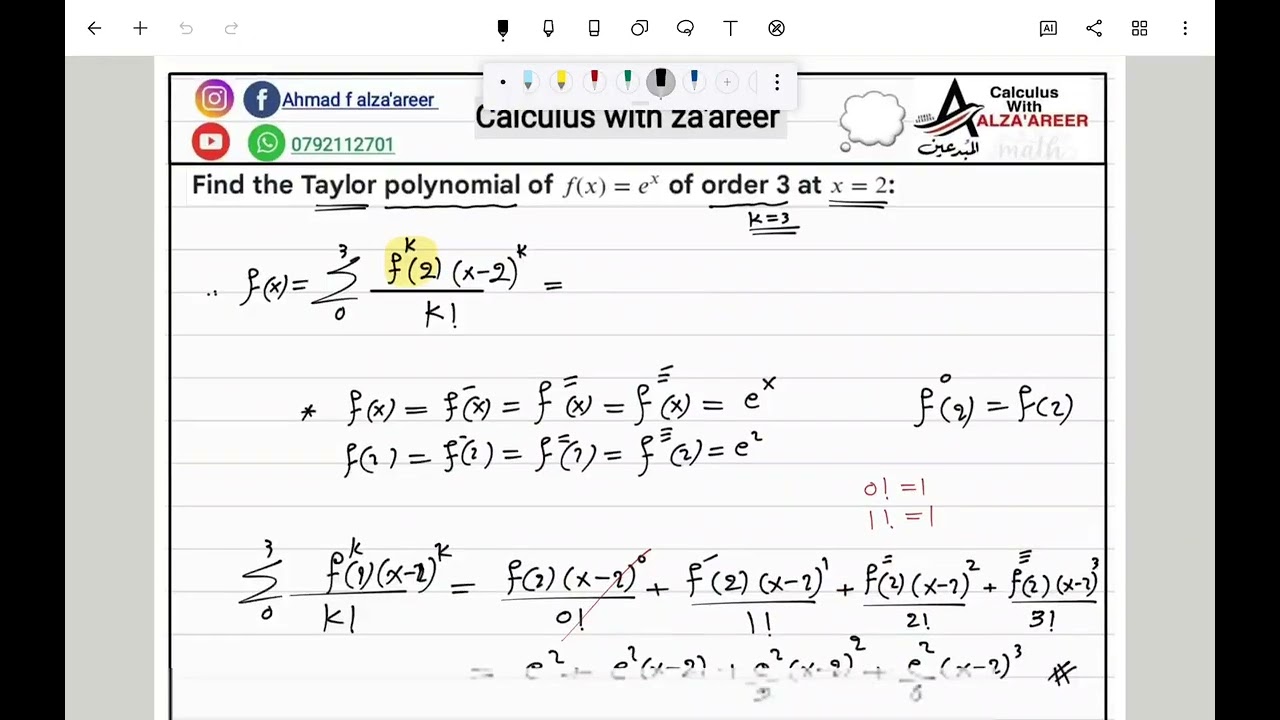 AI
Ahmad f alza'areer
0792112701
Calculus with za'areer
Calculus
With
ALZA'AREER
المبدعين
math
Find the Taylor polynomial of f(x) = eˣ of order 3 at x = 2:
k=3
∴ f(x) = Σ₀³ fᵏ(2) (x-2)ᵏ / k! =
* f(x) = f̄(x) = f̿(x) = f≡(x) = eˣ f⁰(2) = f(2)
f(2) = f̄(2) = f̿(2) = f≡(2) = e²
0! = 1
1! = 1
Σ₀³ fᵏ(2)(x-2)ᵏ / k! = f(2)(x-2)⁰ / 0! + f̄(2)(x-2)¹ / 1! + f̿(2)(x-2)² / 2! + f≡(2)(x-2)³ / 3!
= e² + e²(x-2) + e²/2 (x-2)² + e²/6 (x-2)³ #